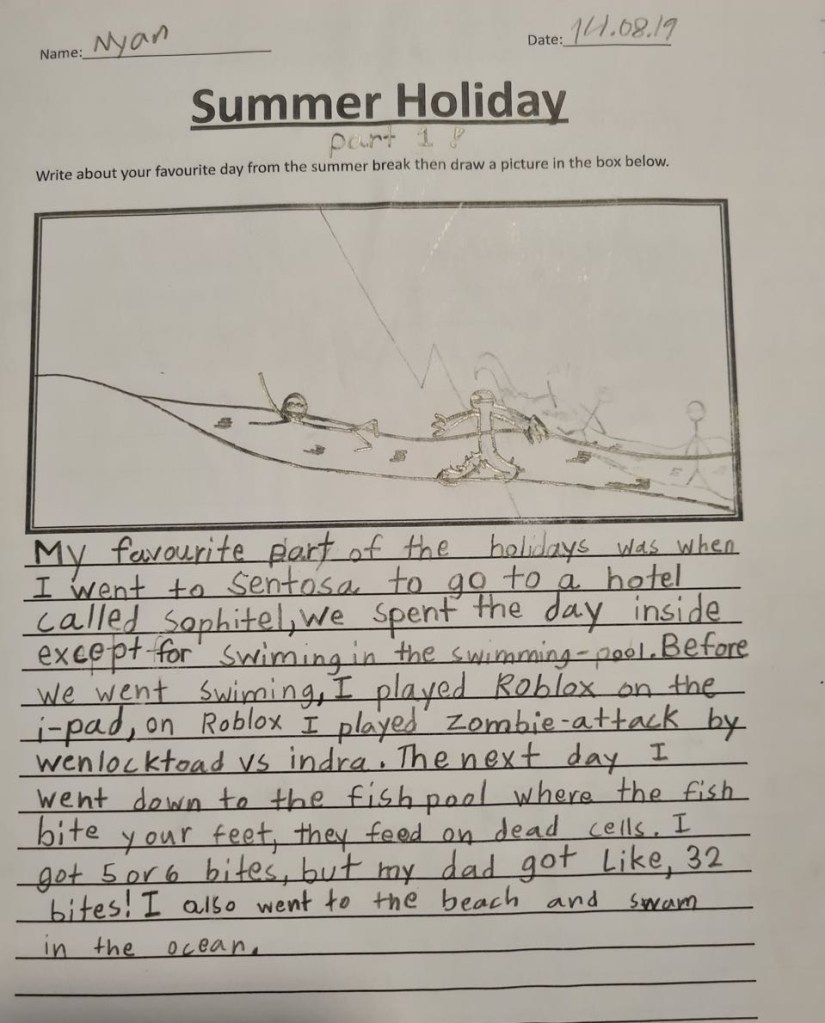 Name: Nyan
Date: 14.08.19
Summer Holiday
part 1
Write about your favourite day from the summer break then draw a picture in the box below.
My favourite part of the holidays was when
I went to Sentosa to go to a hotel
called sophitel, we spent the day inside
except for swiming in the swimming-pool. Before
we went swiming, I played Roblox on the
i-pad, on Roblox I played zombie-attack by
wenlocktoad vs indra. The next day I
went down to the fish pool where the fish
bite your feet, they feed on dead cells. I
got 5 or 6 bites, but my dad got Like, 32
bites! I also went to the beach and swam
in the ocean.